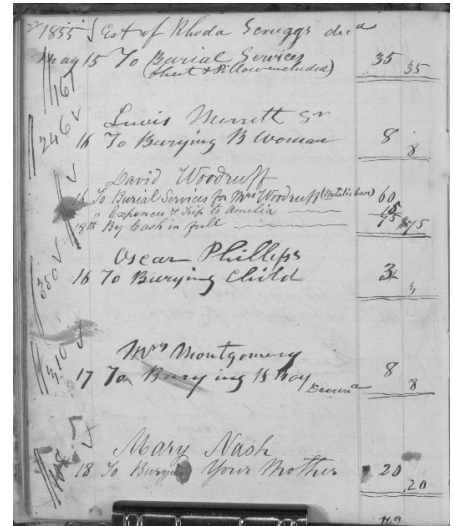 22
1855 Est of Rhoda Scruggs dec d
May 15 To Burial Services 35
(Sheet & Pillow included) 35
167
Lewis Merrett Sr
246
16 To Burying B Woman 8
8
David Woodruff
16 To Burial Services for Mrs Woodruff (Metalic base) 60
" Expences & Trip to Amelia 15
18th By Cash in full 75 75
Oscar Phillips
350
16 To Burying Child 3
3
Mrs Montgomery
310
17 To Burying B Boy 8
8
Mary Nash
18 To Burying Your Mother 20
20